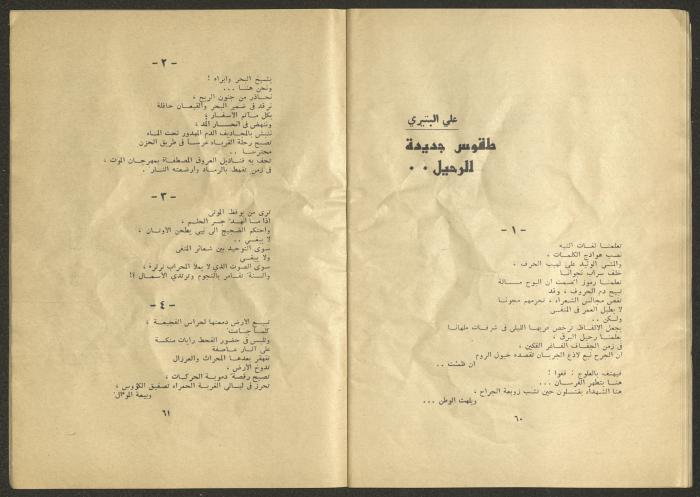 علي البتيري
طقوس جديدة
للرحيل ..
- ١ -
تعلمنا لغات التيه
نصب هوادج الكلمات ،
والمشي الوئيد على لهيب الحرف ،
خلف سراب نجوانا
تعلمنا رموز الصمت ان البوح مسألة
تبيح دم الحروف ، وقد
تقض مجالس الشعراء ، تحرمهم مجونا
لا يطيل العمر في المنفى
ولكن ..
يجعل الالفاظ ترخص عريها الليلي في شرفات ملهانا
تعلمنا رحيل البرق ،
في زمن الجفاف الفاغر الفكين ،
ان الجرح نبع لاذع الجريان تقصده خيول الروم
ان ظمئت ..
فيهتف بالعلوج : قفوا !
هنا يتطهر الفرسان ...
هنا الشهداء يغتسلون حين تشب زوبعة الجراح ،
ويلهث الوطن ...
٦٠
- ٢ -
يشيخ البحر وابراه !
ونحن هنا ...
نحاذر من جنون الريح ،
نرقد في ضمير البحر والقيعان حافلة
بكل مآتم الاسفار ؛
وننهض في انحسار المد ،
ننبش بالمجاديف الدم المهدور تحت الماء
تصبح رحلة الغرباء عرسا في طريق الحزن
محترسا ..
تحف به قناديل العروق المصطفاة بمهرجان الموت ،
في زمن تقمط بالرماد وارضعته النار .
- ٣ -
ترى من يوقظ الموتى
اذا ما انهد جسر الحلم ،
واحتكم الضجيج الى نبي يطحن الاوثان ،
لا يبغي ..
سوى التوحيد بين شعائر المنفى
ولا يبغي
سوى الصوت الذي لا يملأ المحراب ثرثرة ،
والسنة تقامر بالنجوم وترتدي الأسمال ؟!
- ٤ -
تبيع الارض دمعتها لحراس الفجيعة ،
كلما جاعت
وتلبس في حضور القحط رايات منكسة
على آثار عاصفة
تقهقر بعدها المحراث والعرزال
تدوخ الارض ،
تصبح رقصة دموية الحركات ،
تحرز في ليالي الغربة الحمراء تصفيق الكؤوس ،
وبيعة الموال
٦١